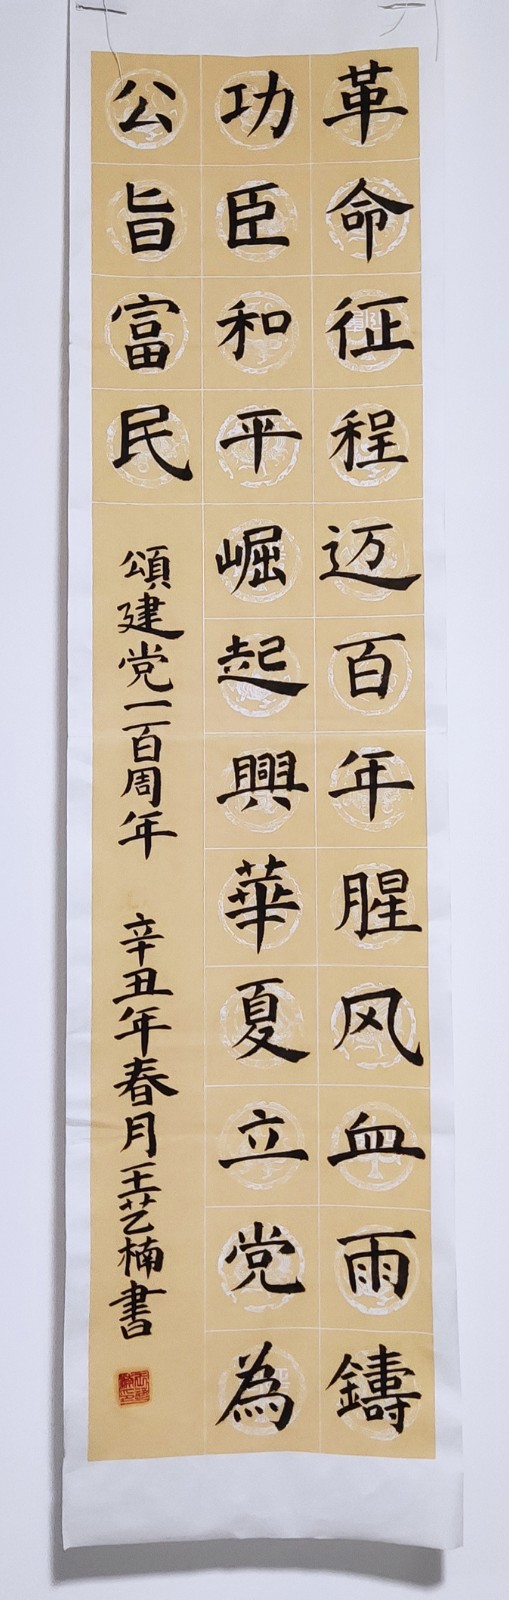 革命征程迈百年腥风血雨鑄
功臣和平崛起興華夏立党為
公旨富民
頌建党一百周年 辛丑年春月王艺楠書